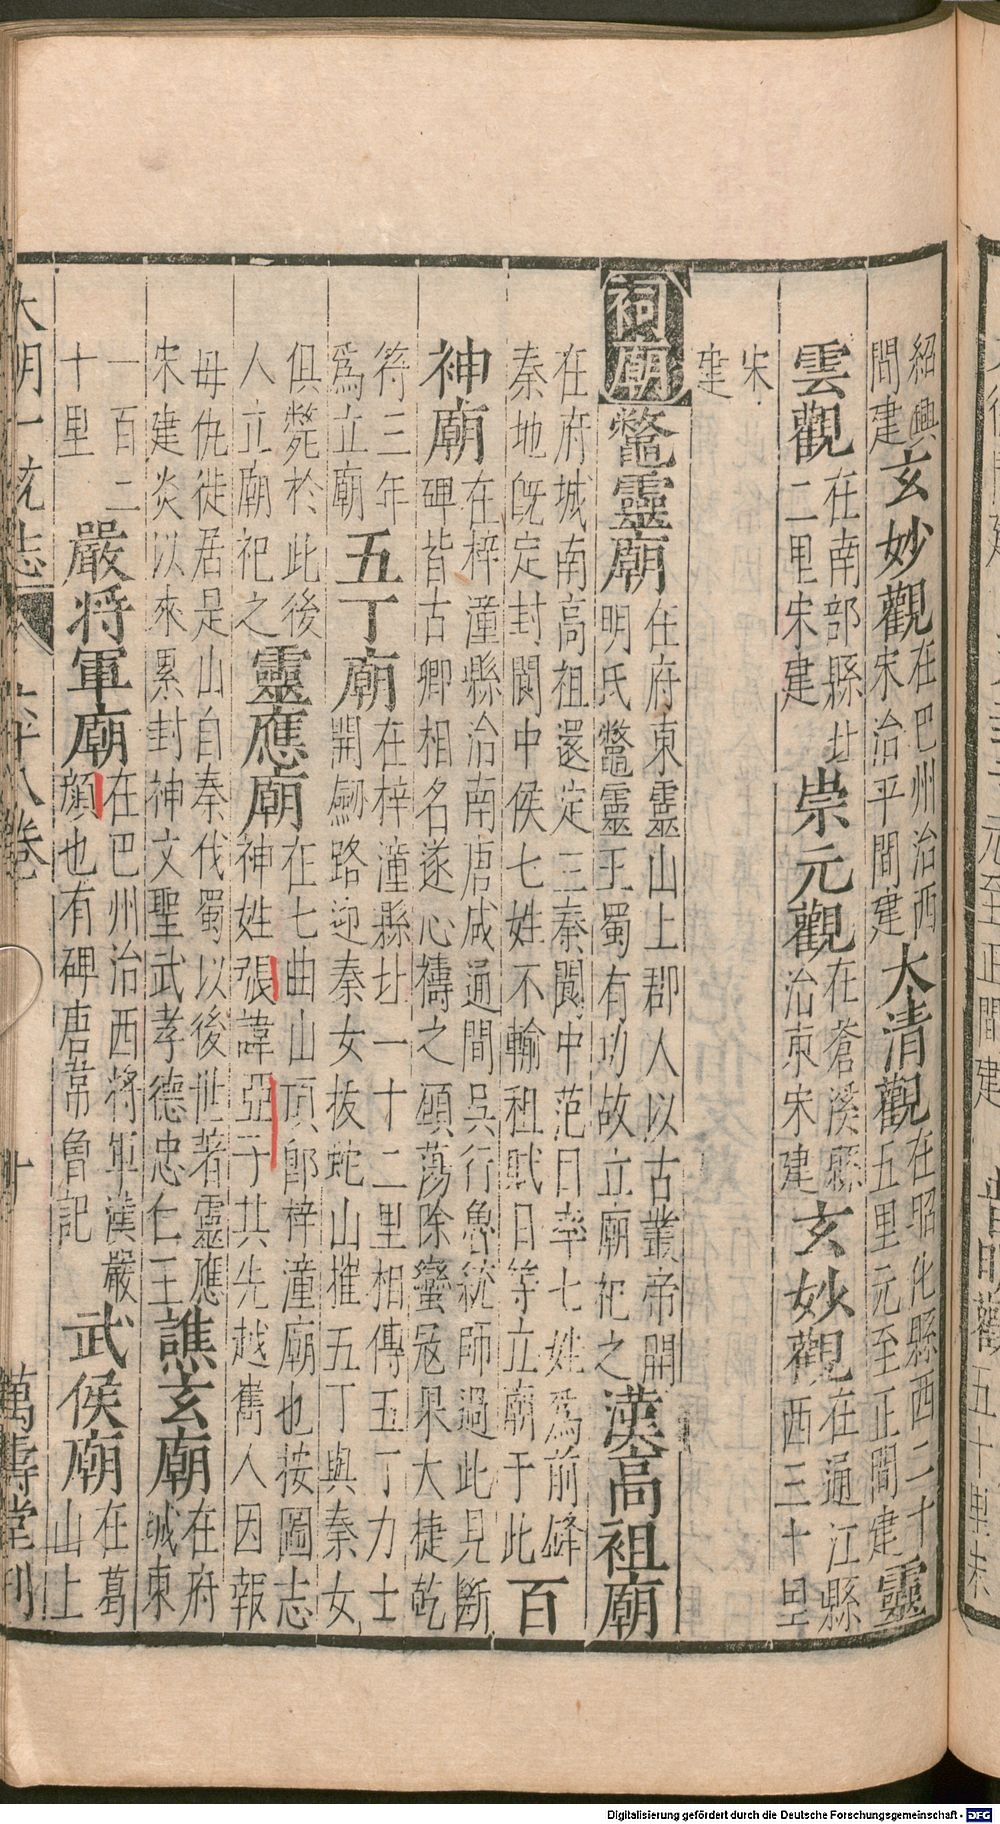 紹興間建玄妙觀在巴州治西宋治平間建大清觀在昭化縣西二十五里元至正間建靈
雲觀在南部縣北二里宋建崇元觀在蒼溪縣治東宋建玄妙觀在通江縣西三十里
宋建
祠廟鼈靈廟在府東靈山上郡人以古叢帝開明氏鼈靈王蜀有功故立廟祀之漢高祖廟
在府城南高祖還定三秦閬中范日率七姓為前鋒秦地既定封閬中侯七姓不輸租賦日等立廟于此百
神廟在梓潼縣治南唐咸通間吳行魯統師過此見斷碑皆古卿相名遂心禱之願蕩除蠻寇果大捷乾
符三年為立廟五丁廟在梓潼縣北一十二里相傳五丁力士開劒路迎秦女拔蛇山摧五丁與秦女
俱斃於此後人立廟祀之靈應廟在七曲山頂即梓潼廟也按圖志神姓張諱亞子其先越雋人因報
母仇徙居是山自秦伐蜀以後世著靈應宋建炎以來累封神文聖武孝德忠仁王譙玄廟在府城東
一百二十里嚴將軍廟在巴州治西將軍漢嚴顔也有碑唐韋魯記武侯廟在葛山上
大明一統志 六十八卷 十 萬壽堂刊
Digitalisierung gefördert durch die Deutsche Forschungsgemeinschaft - DFG